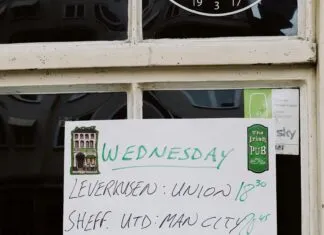 19 3 17
WEDNESDAY
The Irish
PUB
sky
LEVERKUSEN : UNION 18 30
SHEFF. UTD : MAN CITY